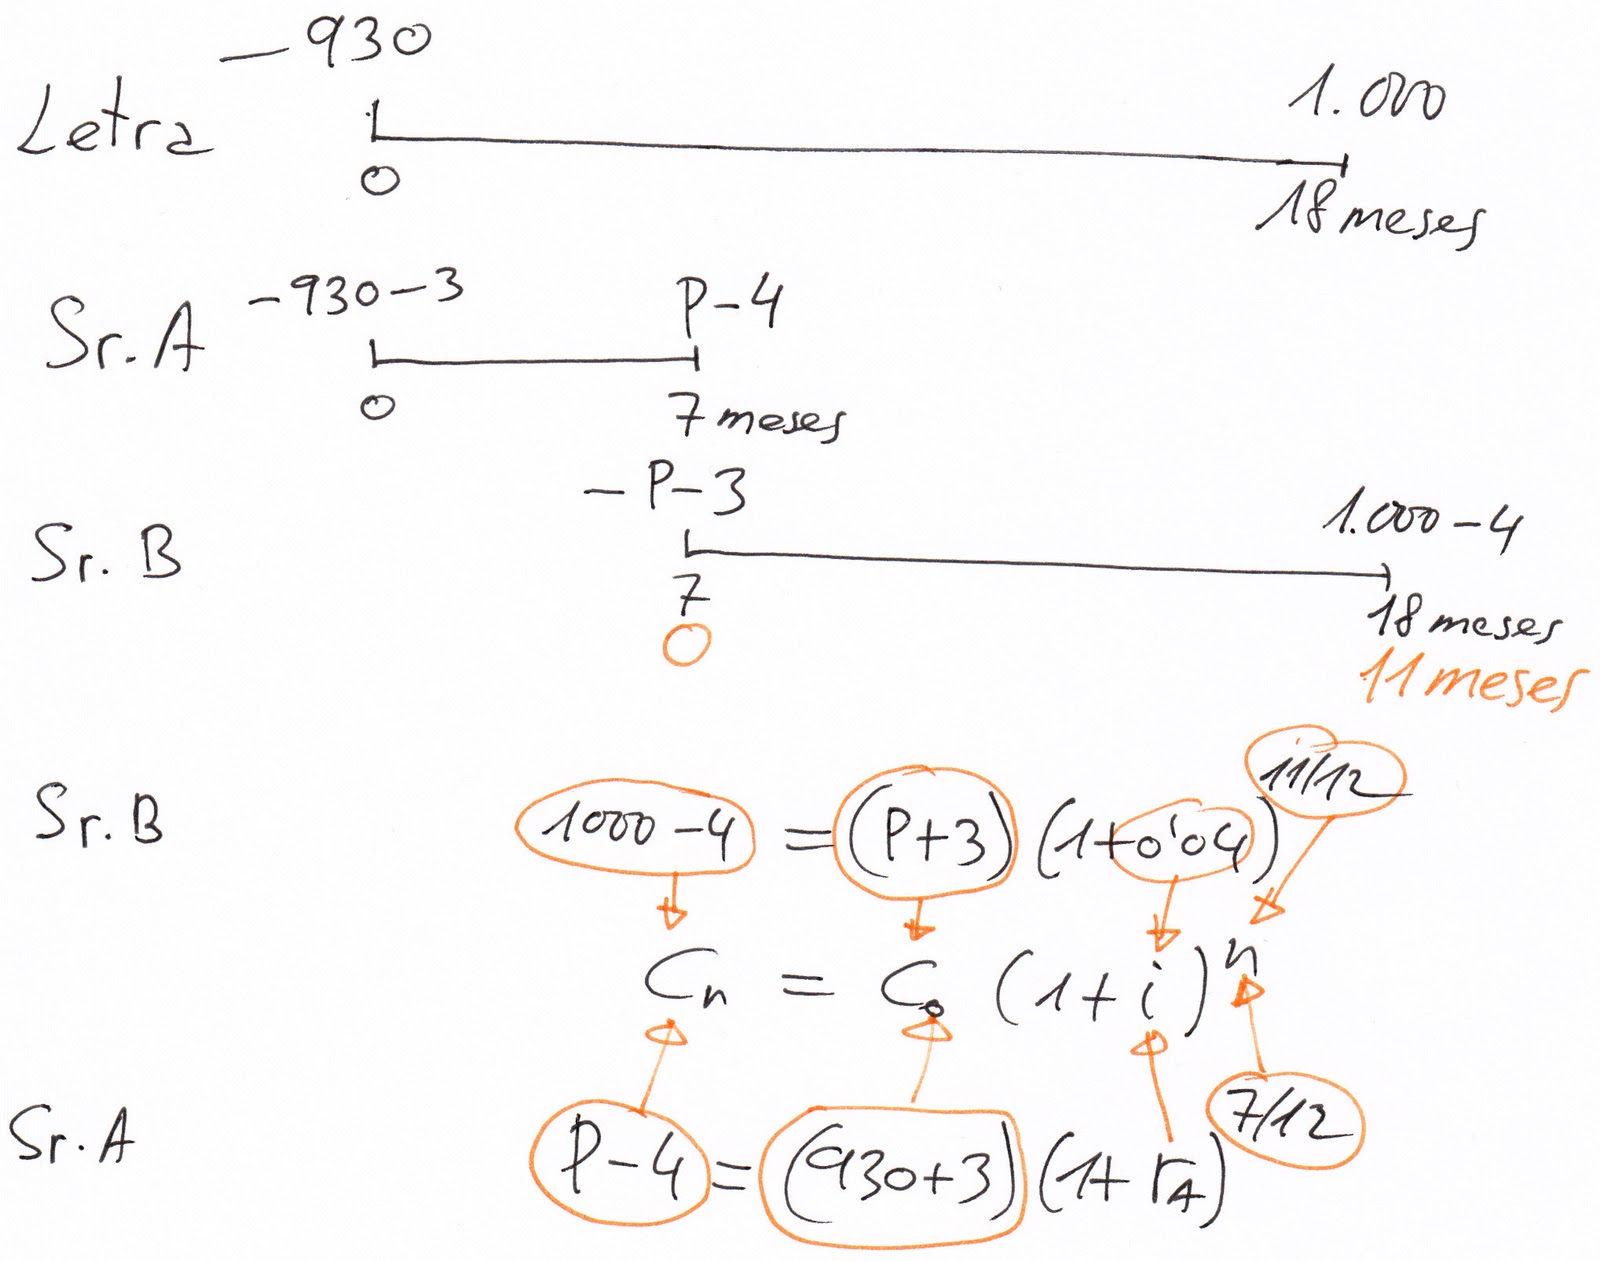 -930
1.000
Letra
0
18 meses
Sr. A -930-3 P-4
0 7 meses
-P-3
1.000-4
Sr. B
7
0
18 meses
11 meses
Sr. B 1000-4 = (P+3) (1+0'04)^11/12
Cn = C0 (1+i)^n
Sr. A P-4 = (930+3) (1+rA)^7/12